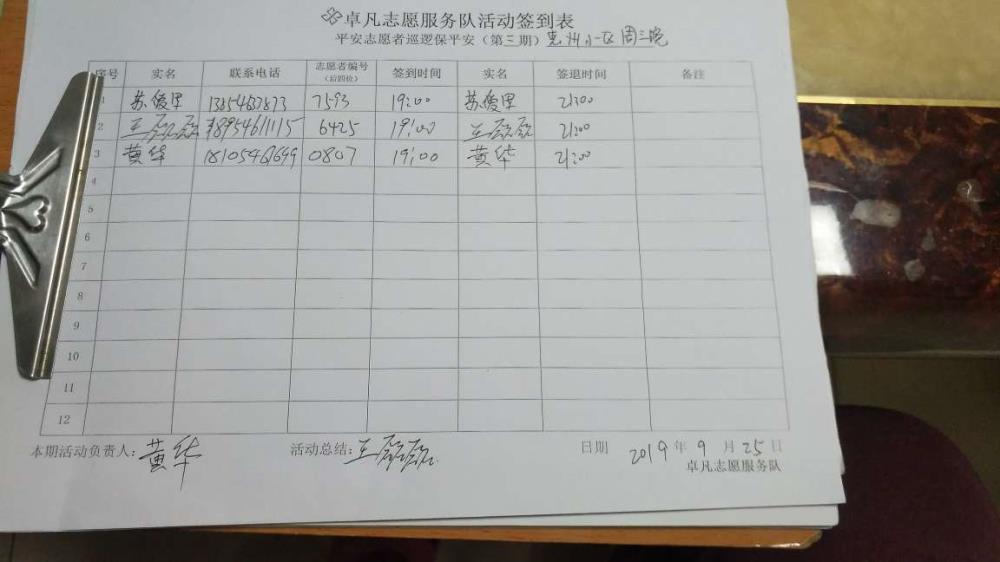 卓凡志愿服务队活动签到表
平安志愿者巡逻保平安（第三期）惠州小区周三晚
序号 实名 联系电话 志愿者编号（后四位） 签到时间 实名 签退时间 备注
1 苏俊里 13854637873 7593 19:00 苏俊里 21:00
2 王磊磊 18954611115 6425 19:00 王磊磊 21:00
3 黄华 0807 19:00 黄华 21:00
4
5
6
7
8
9
10
11
12
本期活动负责人：黄华 活动总结：王磊磊 日期 2019年9月25日
卓凡志愿服务队